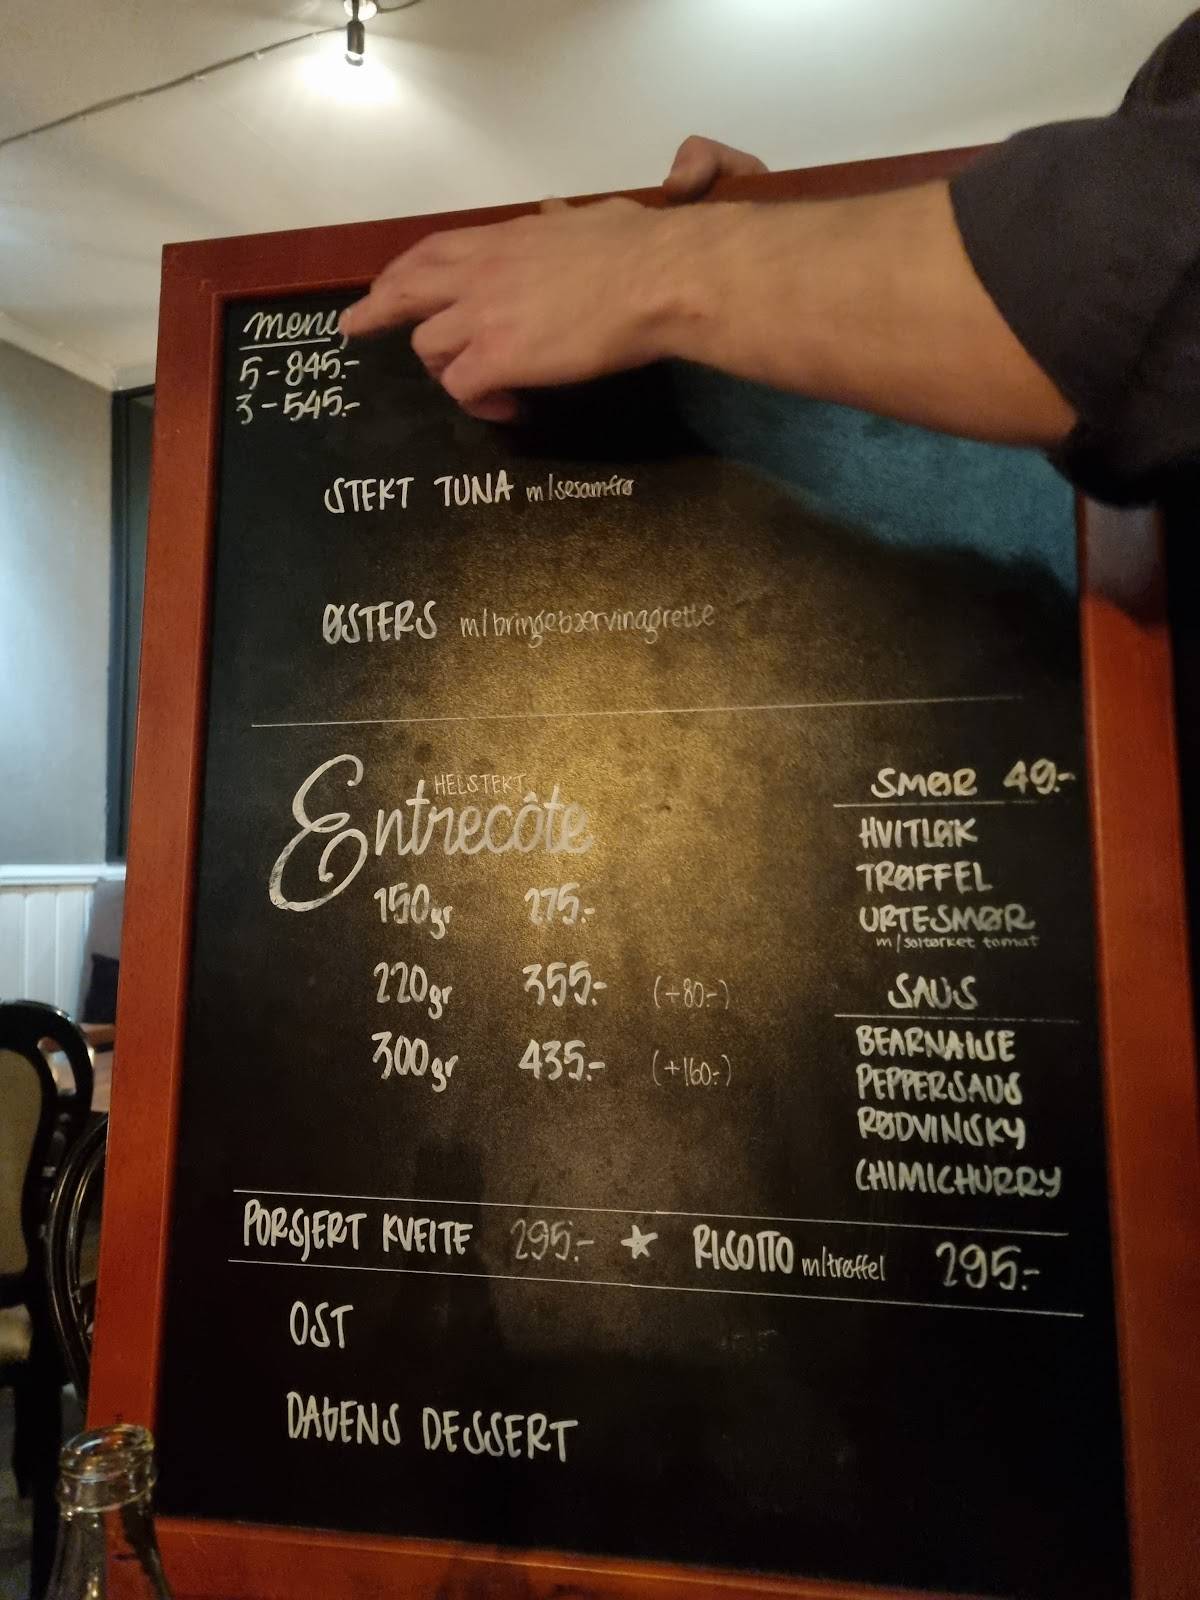 meny
5 - 845.-
3 - 545.-
STEKT TUNA m/sesamfrø
ØSTERS m/bringebærvinagrette
HELSTEKT
Entrecôte
150gr 275.-
220gr 355.- (+80.-)
300gr 435.- (+160.-)
SMØR 49.-
HVITLØK
TRØFFEL
URTESMØR
m/soltørket tomat
SAUS
BEARNAISE
PEPPERSAUS
RØDVINSKY
CHIMICHURRY
PORSJERT KVEITE 295.- ★ RISOTTO m/trøffel 295.-
OST
DAGENS DESSERT